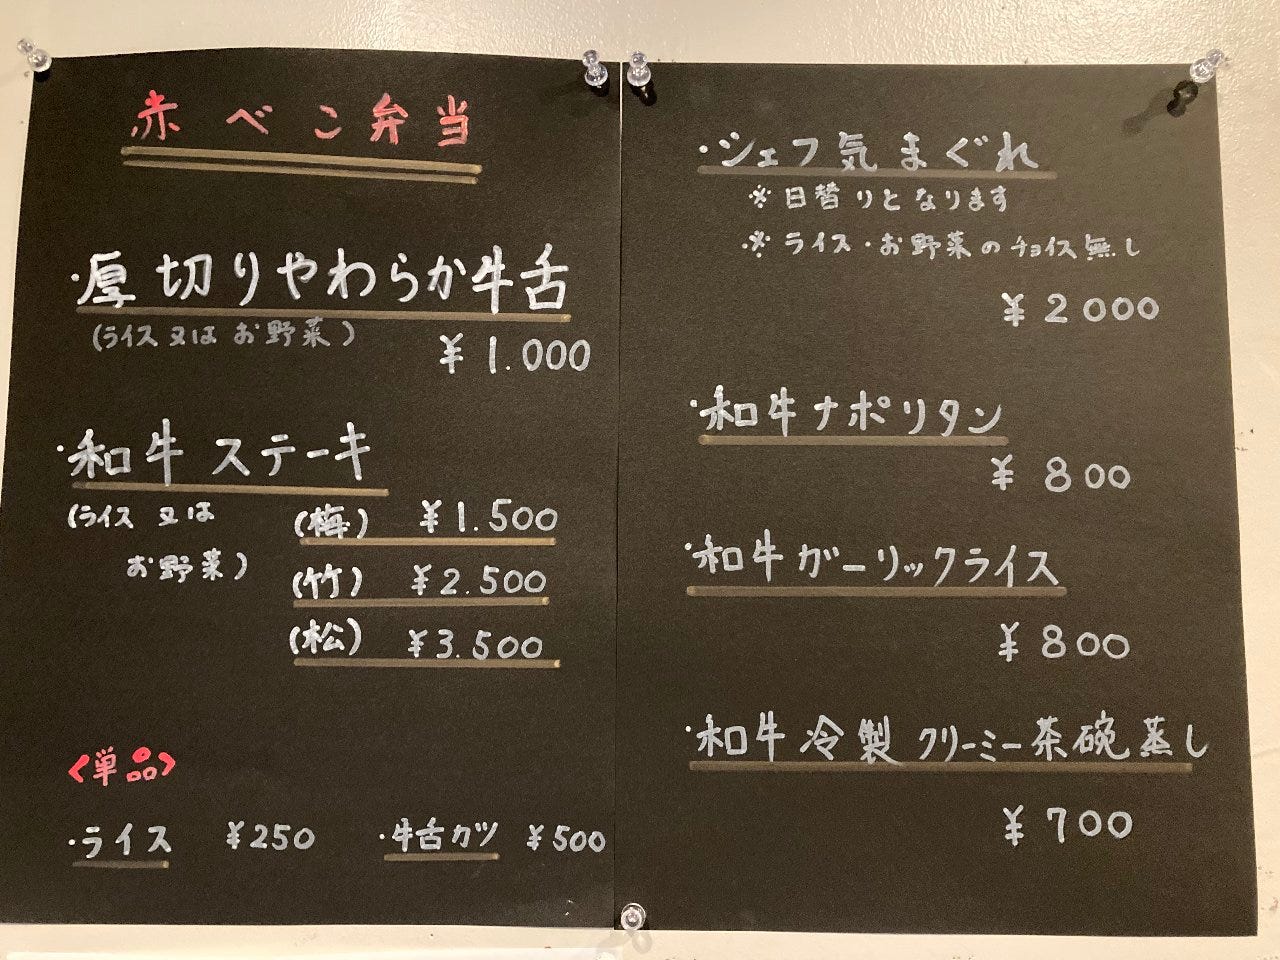 赤べこ弁当
・厚切りやわらか牛舌
(ライス又はお野菜)
¥1.000
・和牛ステーキ
(ライス又は
お野菜)
(梅) ¥1.500
(竹) ¥2.500
(松) ¥3.500
<単品>
・ライス ¥250
・牛舌カツ ¥500
・シェフ気まぐれ
※日替りとなります
※ライス・お野菜のチョイス無し
¥2000
・和牛ナポリタン
¥800
・和牛ガーリックライス
¥800
・和牛冷製クリーミー茶碗蒸し
¥700